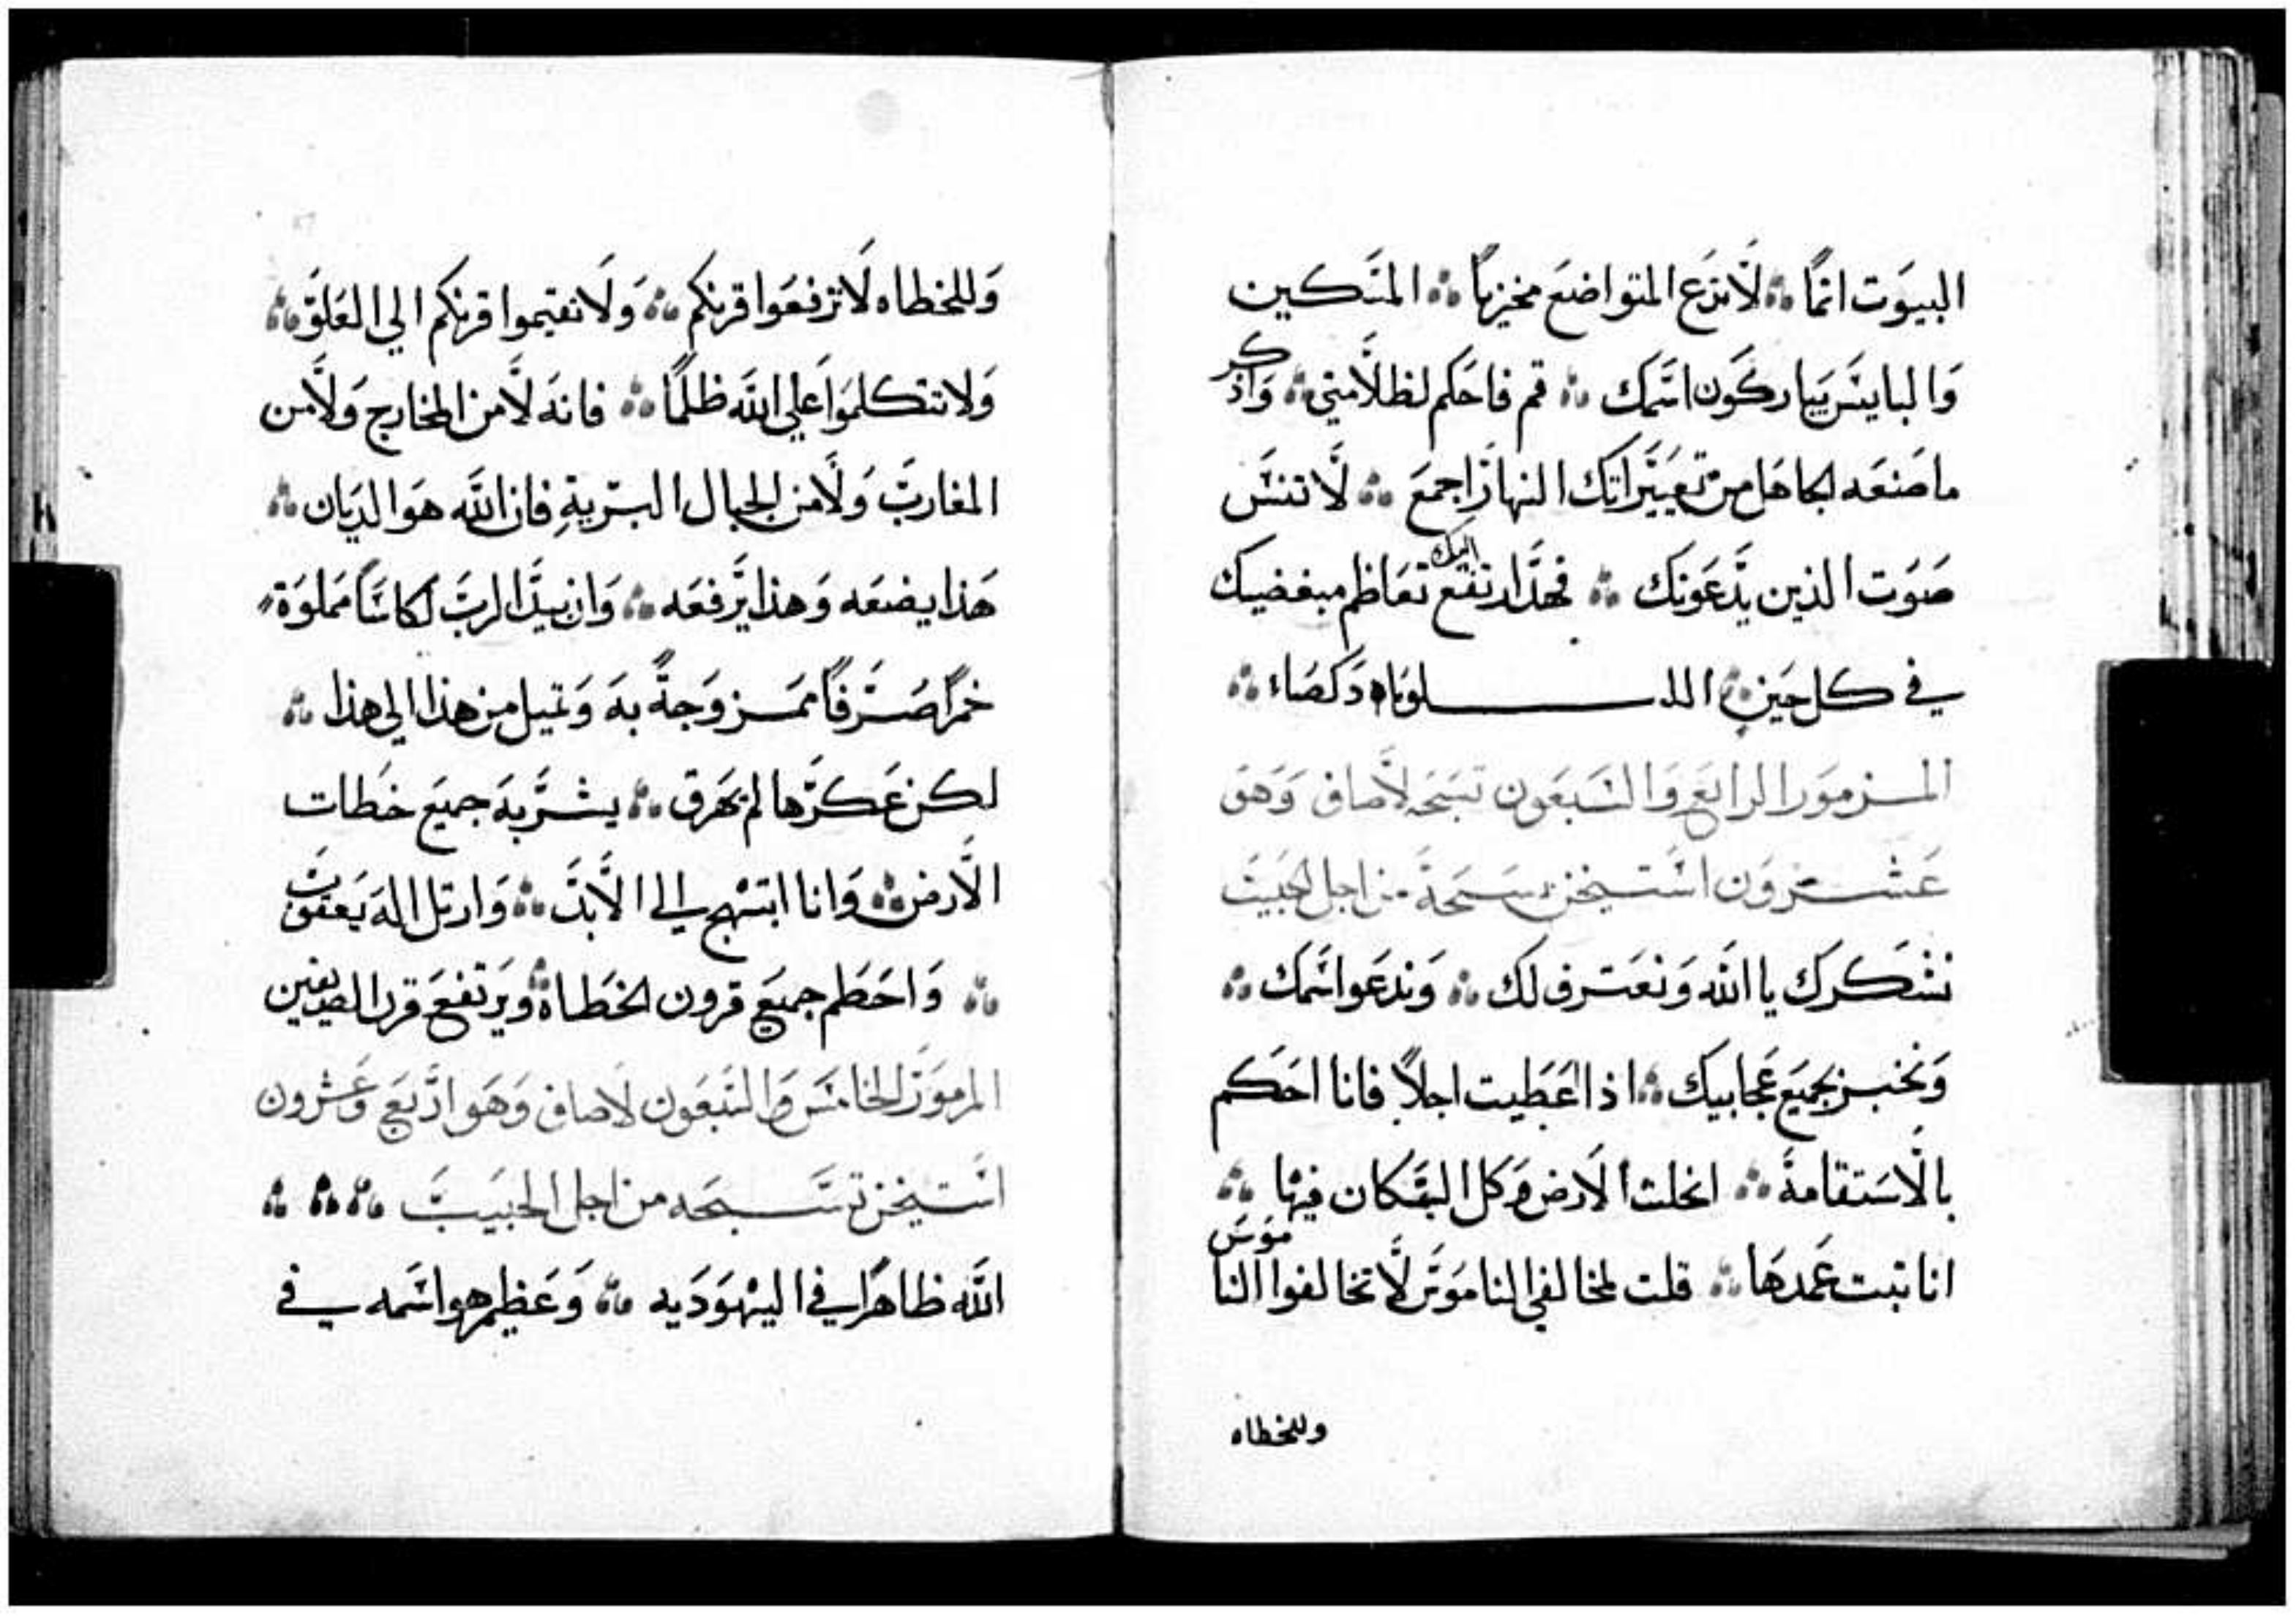 البيوت اثمًا ؞ لا تدع المتواضع مخيزيًا ؞ المسكين
والبايس يباركون اسمك ؞ قم فاحكم لظلامتي ؞ واذكر
ما صنعه الجاهل من تعييراتك النهار اجمع ؞ لا تنس
صوت الذين يدعونك ؞ فهذا ارتفع اليك تعاظم مبغضيك
في كل حين ؞ اللـــلوياه دكصاء ؞
المزمور الرابع والسبعون تسبحه لاصاف وهو
عشرون استيخن سبحة من اجل الحبيب
نشكرك يا الله ونعترف لك ؞ وندعوا اسمك ؞
ونخبر بجميع عجايبك ؞ اذا اعطيت اجلاً فانا احكم
بالاستقامة ؞ انحلت الارض وكل السكان فيها ؞
انا ثبت عمدها ؞ قلت لمخالفي الناموس لا تخالفوا الناموس
وللخطاه
وللخطاه لا ترفعوا قرنكم ؞ ولا تقيموا قرنكم الي العلو ؞
ولا تتكلموا علي الله ظلمًا ؞ فانه لا من المخارج ولا من
المغارب ولا من الجبال البرية فان الله هو الديان ؞
هذا يضعه وهذا يرفعه ؞ وان بيد الرب لكاسًا مملوة
خمرًا صرفًا ممزوجة به وتميل من هذا الي هذا ؞
لكن عكرها لم يهرق ؞ يشربه جميع خطات
الارض ؞ وانا ابتهج الي الابد ؞ وارتل اله يعقوب
؞ واحطم جميع قرون الخطاة ؞ ويرتفع قرن الصديقين
المزمور الخامس والسبعون لاصاف وهو اربع وعشرون
استيخن تسبحه من اجل الحبيب ؞ ؞ ؞ ؞
الله ظاهرًا في اليهوديه ؞ وعظيم هو اسمه في